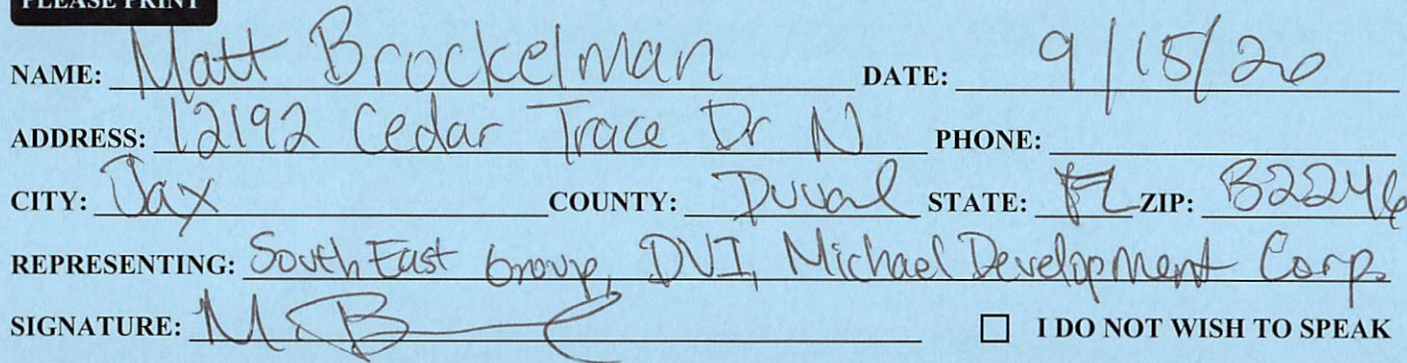 PLEASE PRINT
NAME: Matt Brockelman DATE: 9/15/20
ADDRESS: 12192 Cedar Trace Dr N PHONE:
CITY: Jax COUNTY: Duval STATE: FL ZIP: 32246
REPRESENTING: SouthEast Group, DVI, Michael Development Corp.
SIGNATURE: MB I DO NOT WISH TO SPEAK